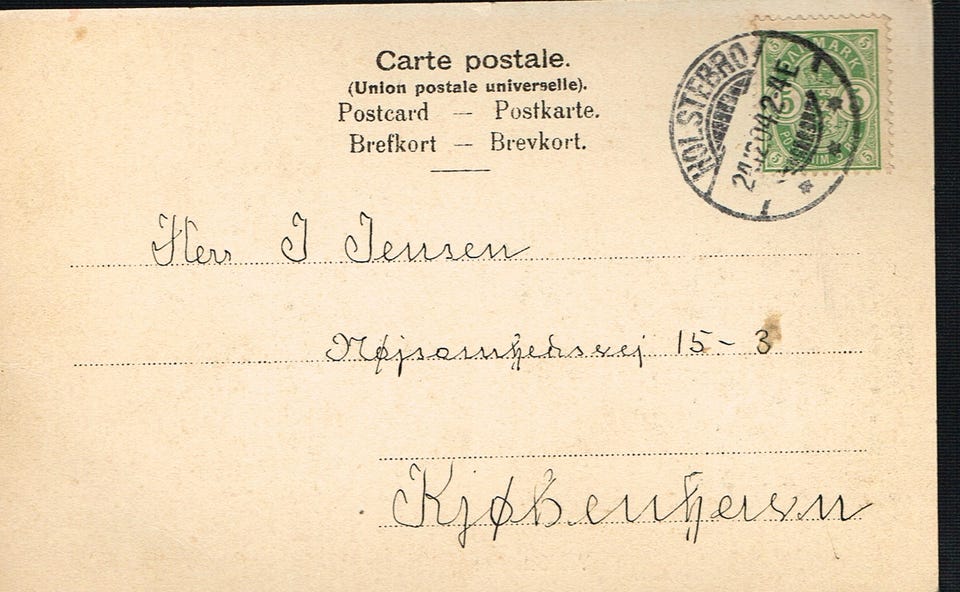 Carte postale.
(Union postale universelle).
Postcard — Postkarte.
Brefkort — Brevkort.
HOLSTEBRO
24.12.04.2-4E
DANMARK
5 5
Herr J Jensen
Nøjsomhedsvej 15-3
Kjøbenhavn